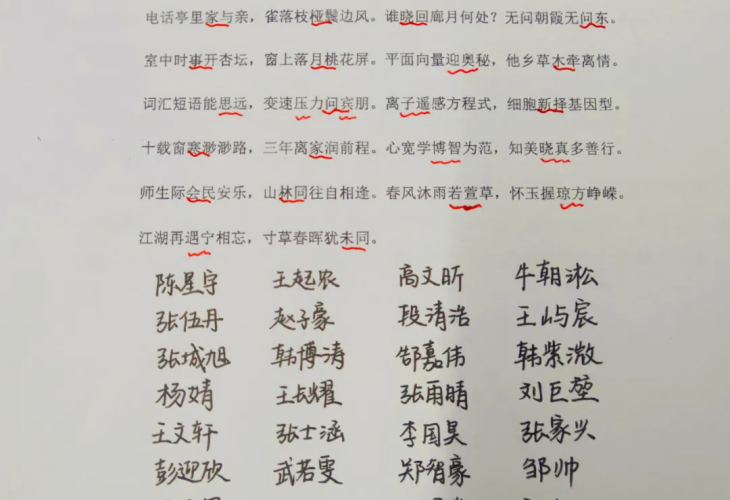 电话亭里家与亲，雀落枝桠鬓边风。谁晓回廊月何处？无问朝霞无问东。
室中时事开杏坛，窗上落月桃花屏。平面向量迎奥秘，他乡草木牵离情。
词汇短语能思远，变速压力问宾朋。离子遥感方程式，细胞新择基因型。
十载窗寒渺渺路，三年离家润前程。心宽学博智为范，知美晓真多善行。
师生际会民安乐，山林同往自相逢。春风沐雨若萱草，怀玉握琼方峥嵘。
江湖再遇宁相忘，寸草春晖犹未同。
陈星宇 王起农 高文昕 牛朝淞
张伍丹 赵子豪 段清浩 王屿宸
张城旭 韩博涛 郜嘉伟 韩紫溦
杨婧 王长耀 张雨晴 刘巨堃
王文轩 张士涵 李国昊 张家兴
彭迎欣 武若雯 郑智豪 邹帅